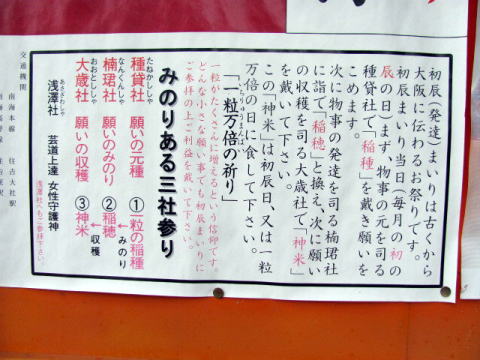 初辰(発達)まいりは古くから
大阪に伝わるお祭りです。
初辰まいり当日(毎月の初の
辰の日)まず、物事の元を司る
種貸社で「稲種」を戴き願いを
こめます。
次に物事の発達を司る楠珺社
に詣で「稲穂」と換え、次に願い
の収穫を司る大歳社で「神米」
を戴いて下さい。
この「神米」は初辰日、又は一粒
万倍の日に食して下さい。
いちりゅうまんばい
「一粒万倍の祈り」
一粒がたくさんに増えるという信仰です。
どんな小さな願い事でも初辰まいりに
ご参拝の上ご利益を戴いて下さい。
みのりある三社参り
たねかししゃ
種貸社 願いの元種 ①一粒の稲種
←みのり
なんくんしゃ
楠珺社 願いのみのり ②稲穂
←収穫
おおとししゃ
大歳社 願いの収穫 ③神米
あさざわしゃ
浅澤社 芸道上達 女性守護神
浅澤社へもご参拝下さい。
交通機関
南海本線 住吉大社駅